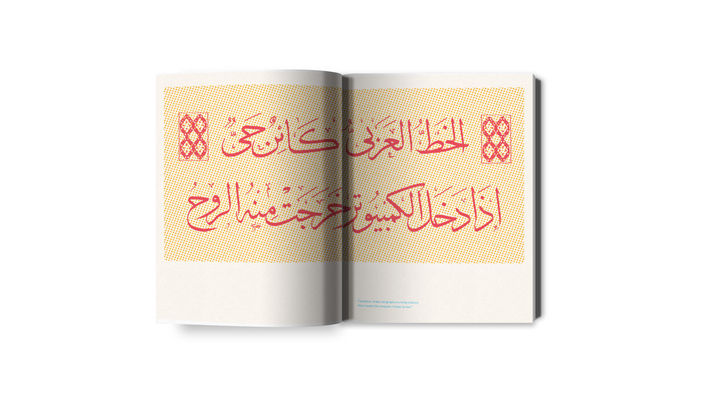 الخَطُّ العَرَبيُّ كَائِنٌ حَيٌّ
إِذَا دَخَلَ الكمبيوتر خَرَجَتْ مِنْهُ الروحُ